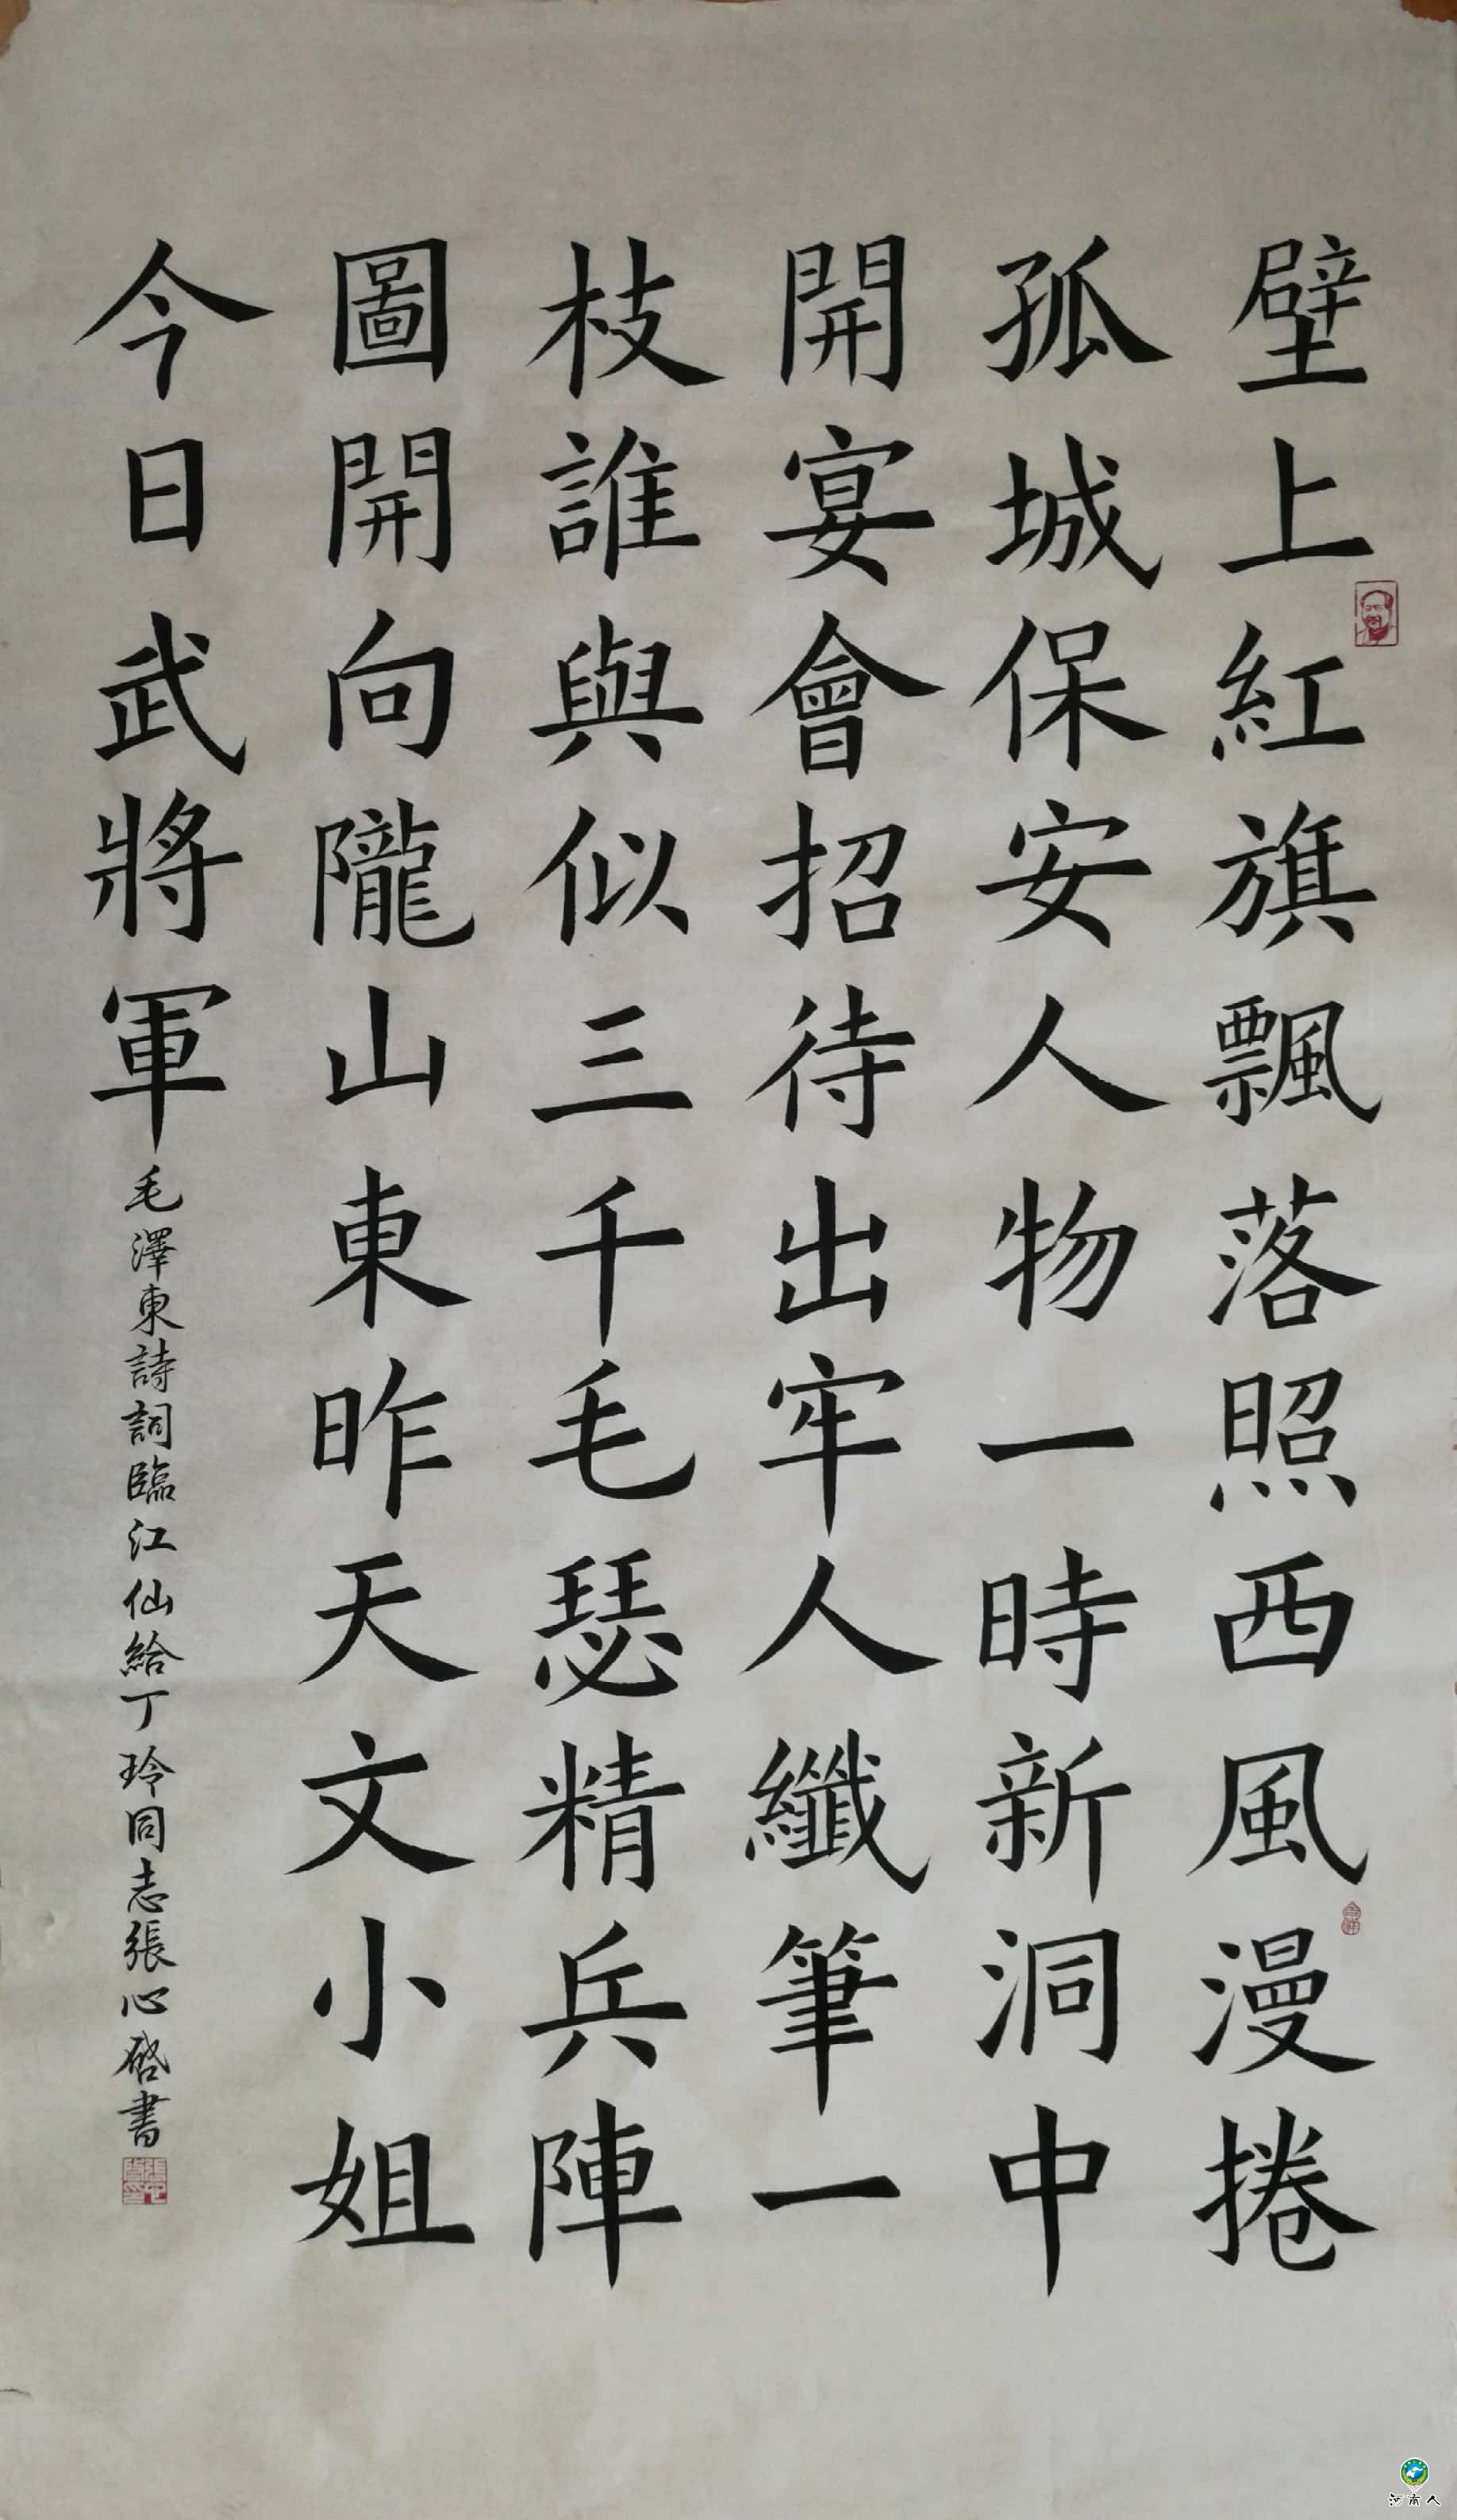 壁上紅旗飄落照西風漫捲
孤城保安人物一時新洞中
開宴會招待出牢人纖筆一
枝誰與似三千毛瑟精兵陣
圖開向隴山東昨天文小姐
今日武將軍
毛澤東詩詞臨江仙給丁玲同志張心啓書
河南人